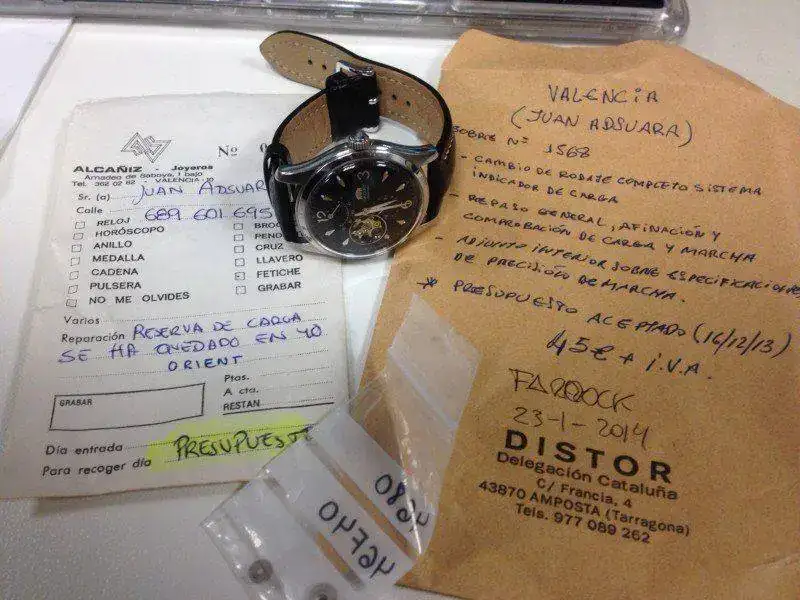 ALCAÑIZ Joyeros
Amadeo de Saboya, 1 bajo
Tel. 362 02 82 - VALENCIA-10
Nº
Sr. (a) JUAN ADSUAR
Calle 689 601 695
RELOJ
HORÓSCOPO
ANILLO
MEDALLA
CADENA
PULSERA
NO ME OLVIDES
BRO
PEND
CRUZ
LLAVERO
FETICHE
GRABAR
Varios
Reparación RESERVA DE CARGA
SE HA QUEDADO EN 40
ORIENT
GRABAR
Ptas.
A cta.
RESTAN
Día entrada
Para recoger día PRESUPUEST
12
3
ORIENT
VALENCIA
(JUAN ADSUARA)
SOBRE Nº 1568
- CAMBIO DE RODAJE COMPLETO SISTEMA
INDICADOR DE CARGA
- REPASO GENERAL, AFINACIÓN Y
COMPROBACIÓN DE CARGA Y MARCHA
- ADJUNTO INTERIOR SOBRE ESPECIFICACIONES
DE PRECISIÓN DE MARCHA.
* PRESUPUESTO ACEPTADO (16/12/13)
45€ + I.V.A.
23-1-2014
DISTOR
Delegación Cataluña
C/ Francia, 4
43870 AMPOSTA (Tarragona)
Tels. 977 089 262
46740